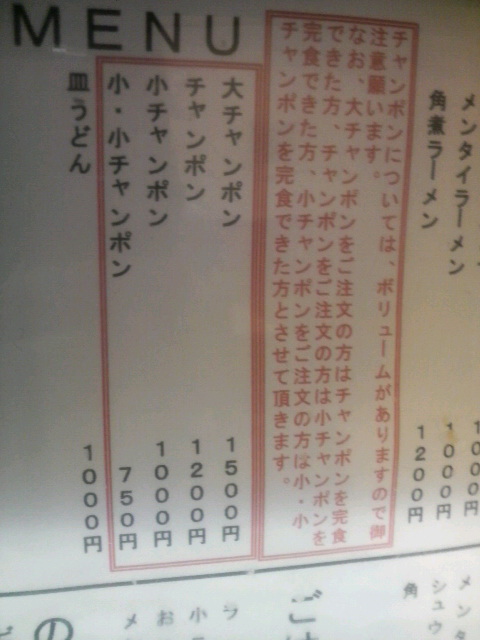 MENU
メンタイラーメン
角煮ラーメン 1200円
チャンポンについては、ボリュームがありますので御
注意願います。
なお、大チャンポンをご注文の方はチャンポンを完食
できた方、チャンポンをご注文の方は小チャンポンを
完食できた方、小チャンポンをご注文の方は小・小
チャンポンを完食できた方とさせて頂きます。
大チャンポン 1500円
チャンポン 1200円
小チャンポン 1000円
小・小チャンポン 750円
皿うどん 1000円
メン
シュウ
角
ご
ラ
小
お
メ
の